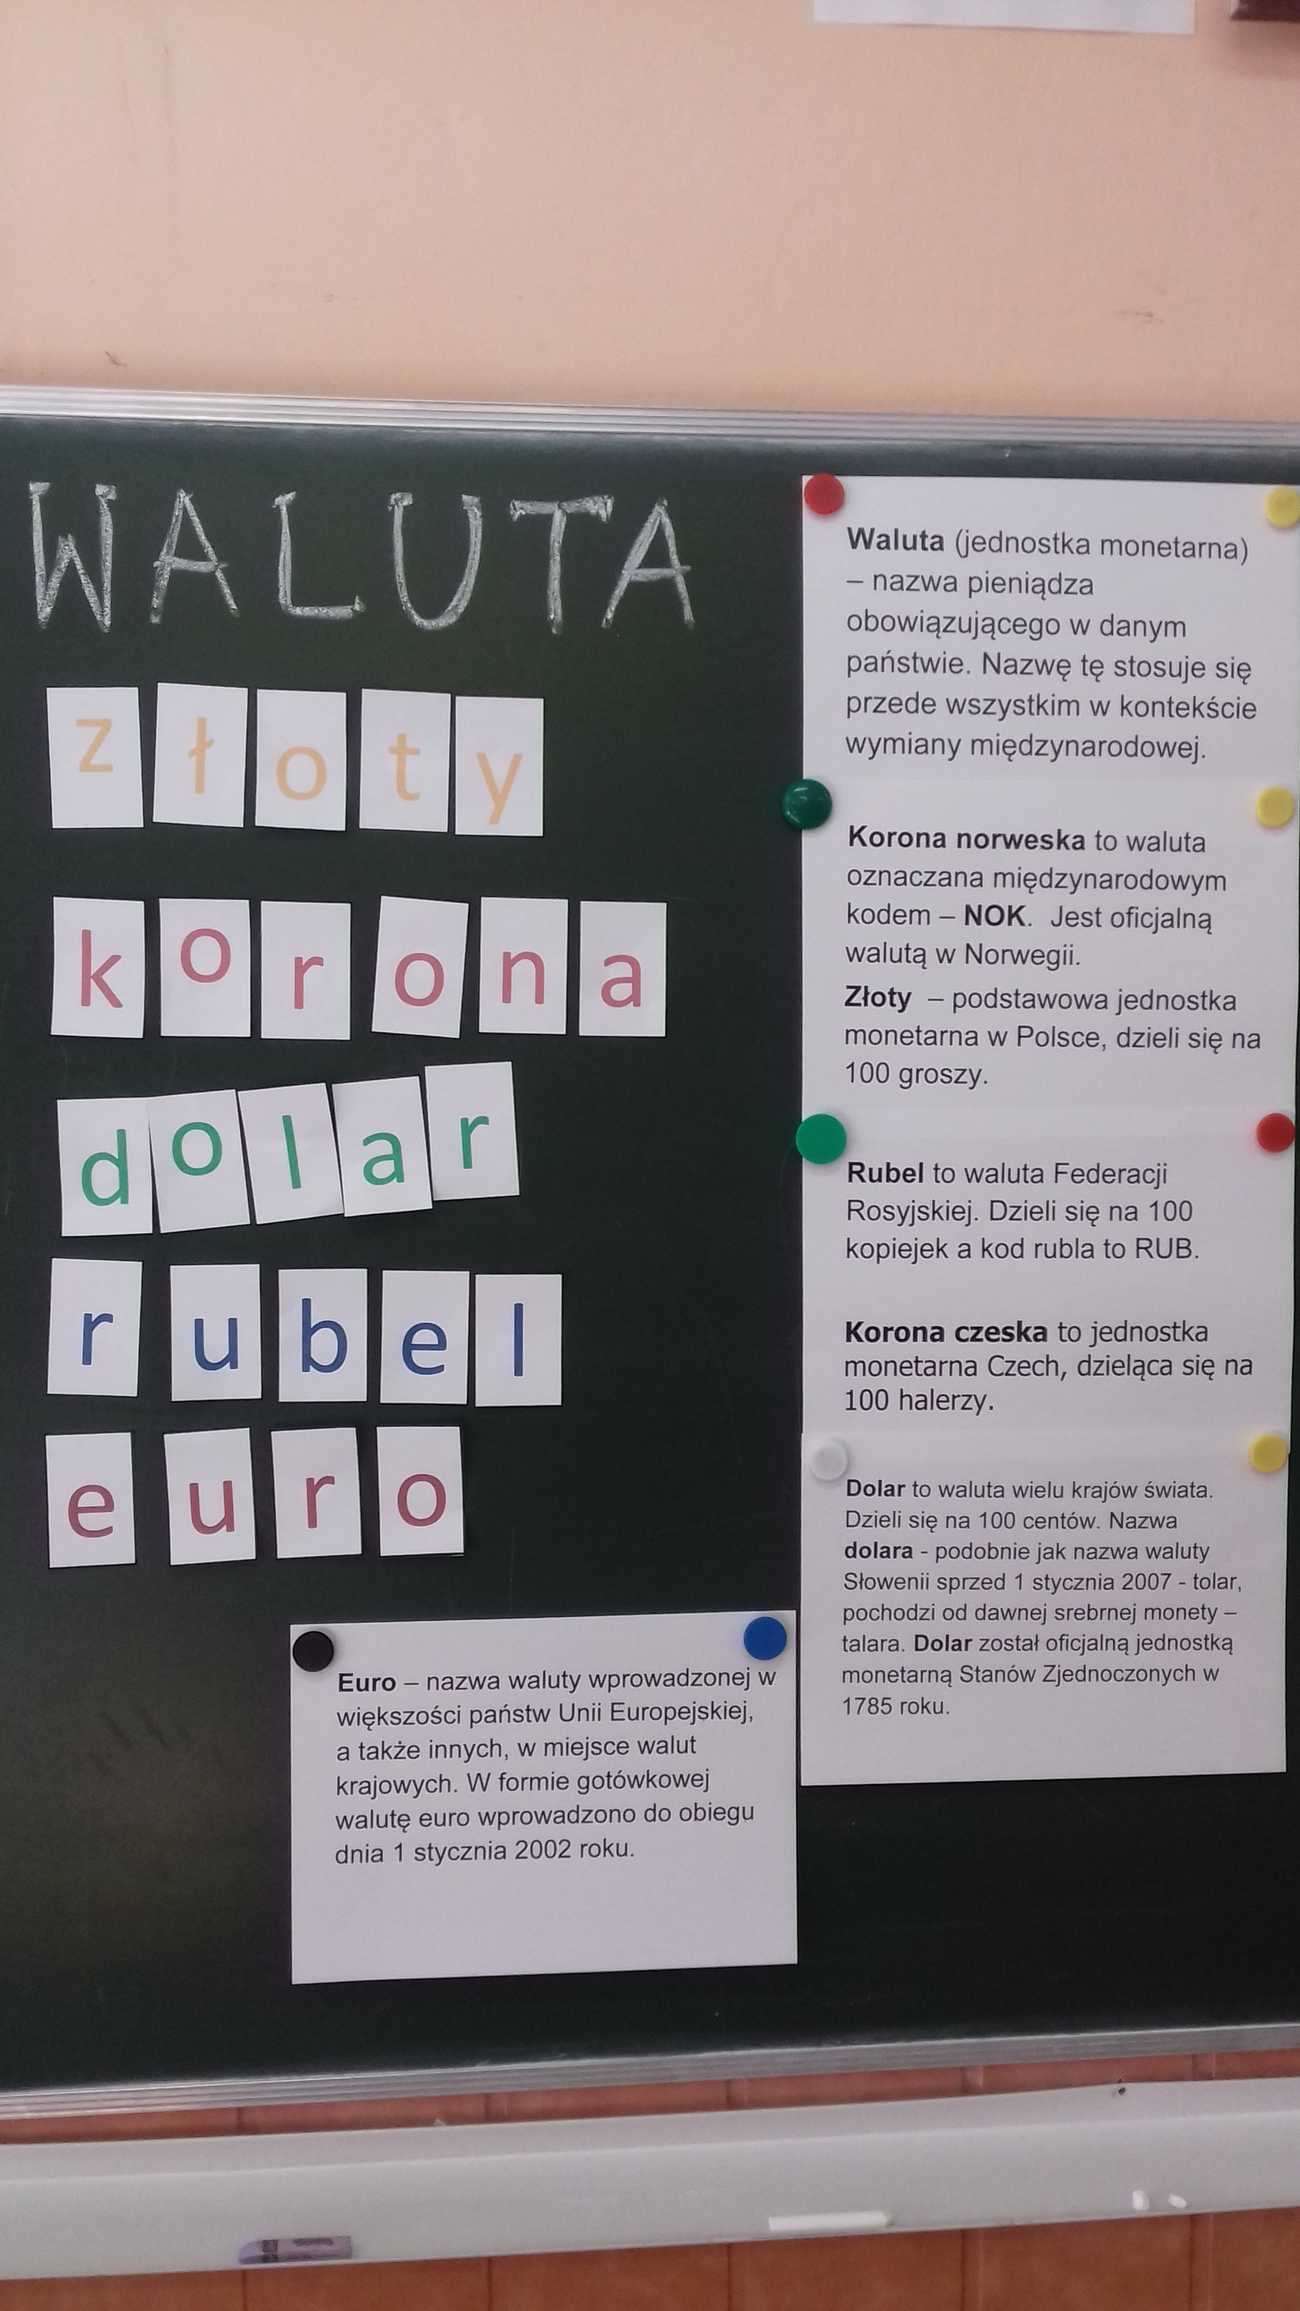 WALUTA
złoty
korona
dolar
rubel
euro
Waluta (jednostka monetarna)
– nazwa pieniądza
obowiązującego w danym
państwie. Nazwę tę stosuje się
przede wszystkim w kontekście
wymiany międzynarodowej.
Korona norweska to waluta
oznaczana międzynarodowym
kodem – NOK. Jest oficjalną
walutą w Norwegii.
Złoty – podstawowa jednostka
monetarna w Polsce, dzieli się na
100 groszy.
Rubel to waluta Federacji
Rosyjskiej. Dzieli się na 100
kopiejek a kod rubla to RUB.
Korona czeska to jednostka
monetarna Czech, dzieląca się na
100 halerzy.
Dolar to waluta wielu krajów świata.
Dzieli się na 100 centów. Nazwa
dolara - podobnie jak nazwa waluty
Słowenii sprzed 1 stycznia 2007 - tolar,
pochodzi od dawnej srebrnej monety –
talara. Dolar został oficjalną jednostką
monetarną Stanów Zjednoczonych w
1785 roku.
Euro – nazwa waluty wprowadzonej w
większości państw Unii Europejskiej,
a także innych, w miejsce walut
krajowych. W formie gotówkowej
walutę euro wprowadzono do obiegu
dnia 1 stycznia 2002 roku.